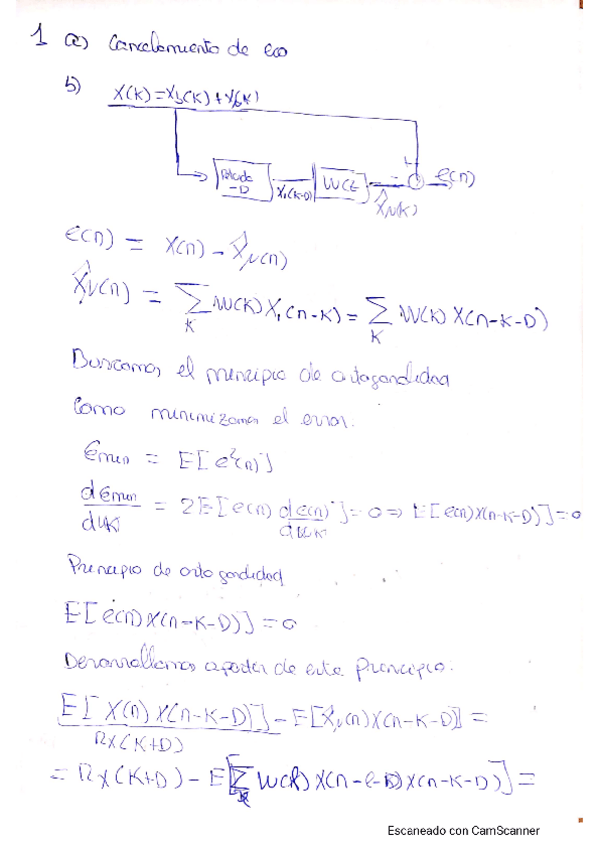 1 a) Cancelamiento de eco
b) X(K)=Xb(K)+Xv(K)
Retardo
-D
X₁(K-D)
W(z)
-
e(n)
X̂v(K)
e(n) = X(n) - X̂v(n)
X̂v(n) = ∑K W(K) X₁(n-K) = ∑K W(K) X(n-K-D)
Buscamos el principio de ortogonalidad
Como minimizamos el error:
Emin = E[e²(n)]
dEmin/dwK = 2E[e(n) de(n)/dwK] = 0 => E[e(n)X(n-K-D)] = 0
Principio de ortogonalidad
E[e(n)X(n-K-D)] = 0
Desarrollamos a partir de este principio:
E[X(n)X(n-K-D)] - E[X̂v(n)X(n-K-D)] =
Rx(K+D)
= Rx(K+D) - E[∑ℓ W(ℓ)X(n-ℓ-D)X(n-K-D)] =
Escaneado con CamScanner